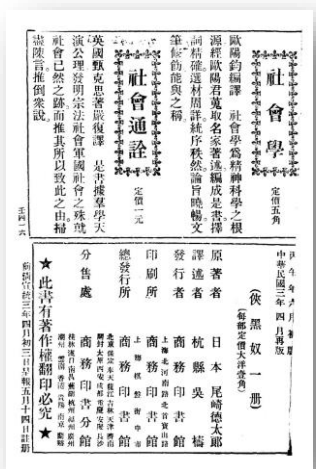 社會學
定價五角
歐陽鈞編譯　社會學爲精神科學之根
源經歐陽君蒐取名家著述編成是書擇
詞精確選材周詳統序秩然論旨曉暢文
筆條飭能與之稱
社會通詮
定價一元
英國甄克思著嚴復譯　是書據羣學天
演公理發明宗法社會軍國社會之殊致
社會已然之跡而推其所以致此之由掃
盡陳言推倒衆說
中華民國三年四月再版
(俠黑奴一册)
(每部定價大洋壹角)
原著者　日本尾崎德太郎
譯述者　杭縣吳檮
發行者　商務印書館
印刷所　商務印書館
總發行所　商務印書館
分售處　商務印書分館
★此書有著作權翻印必究★